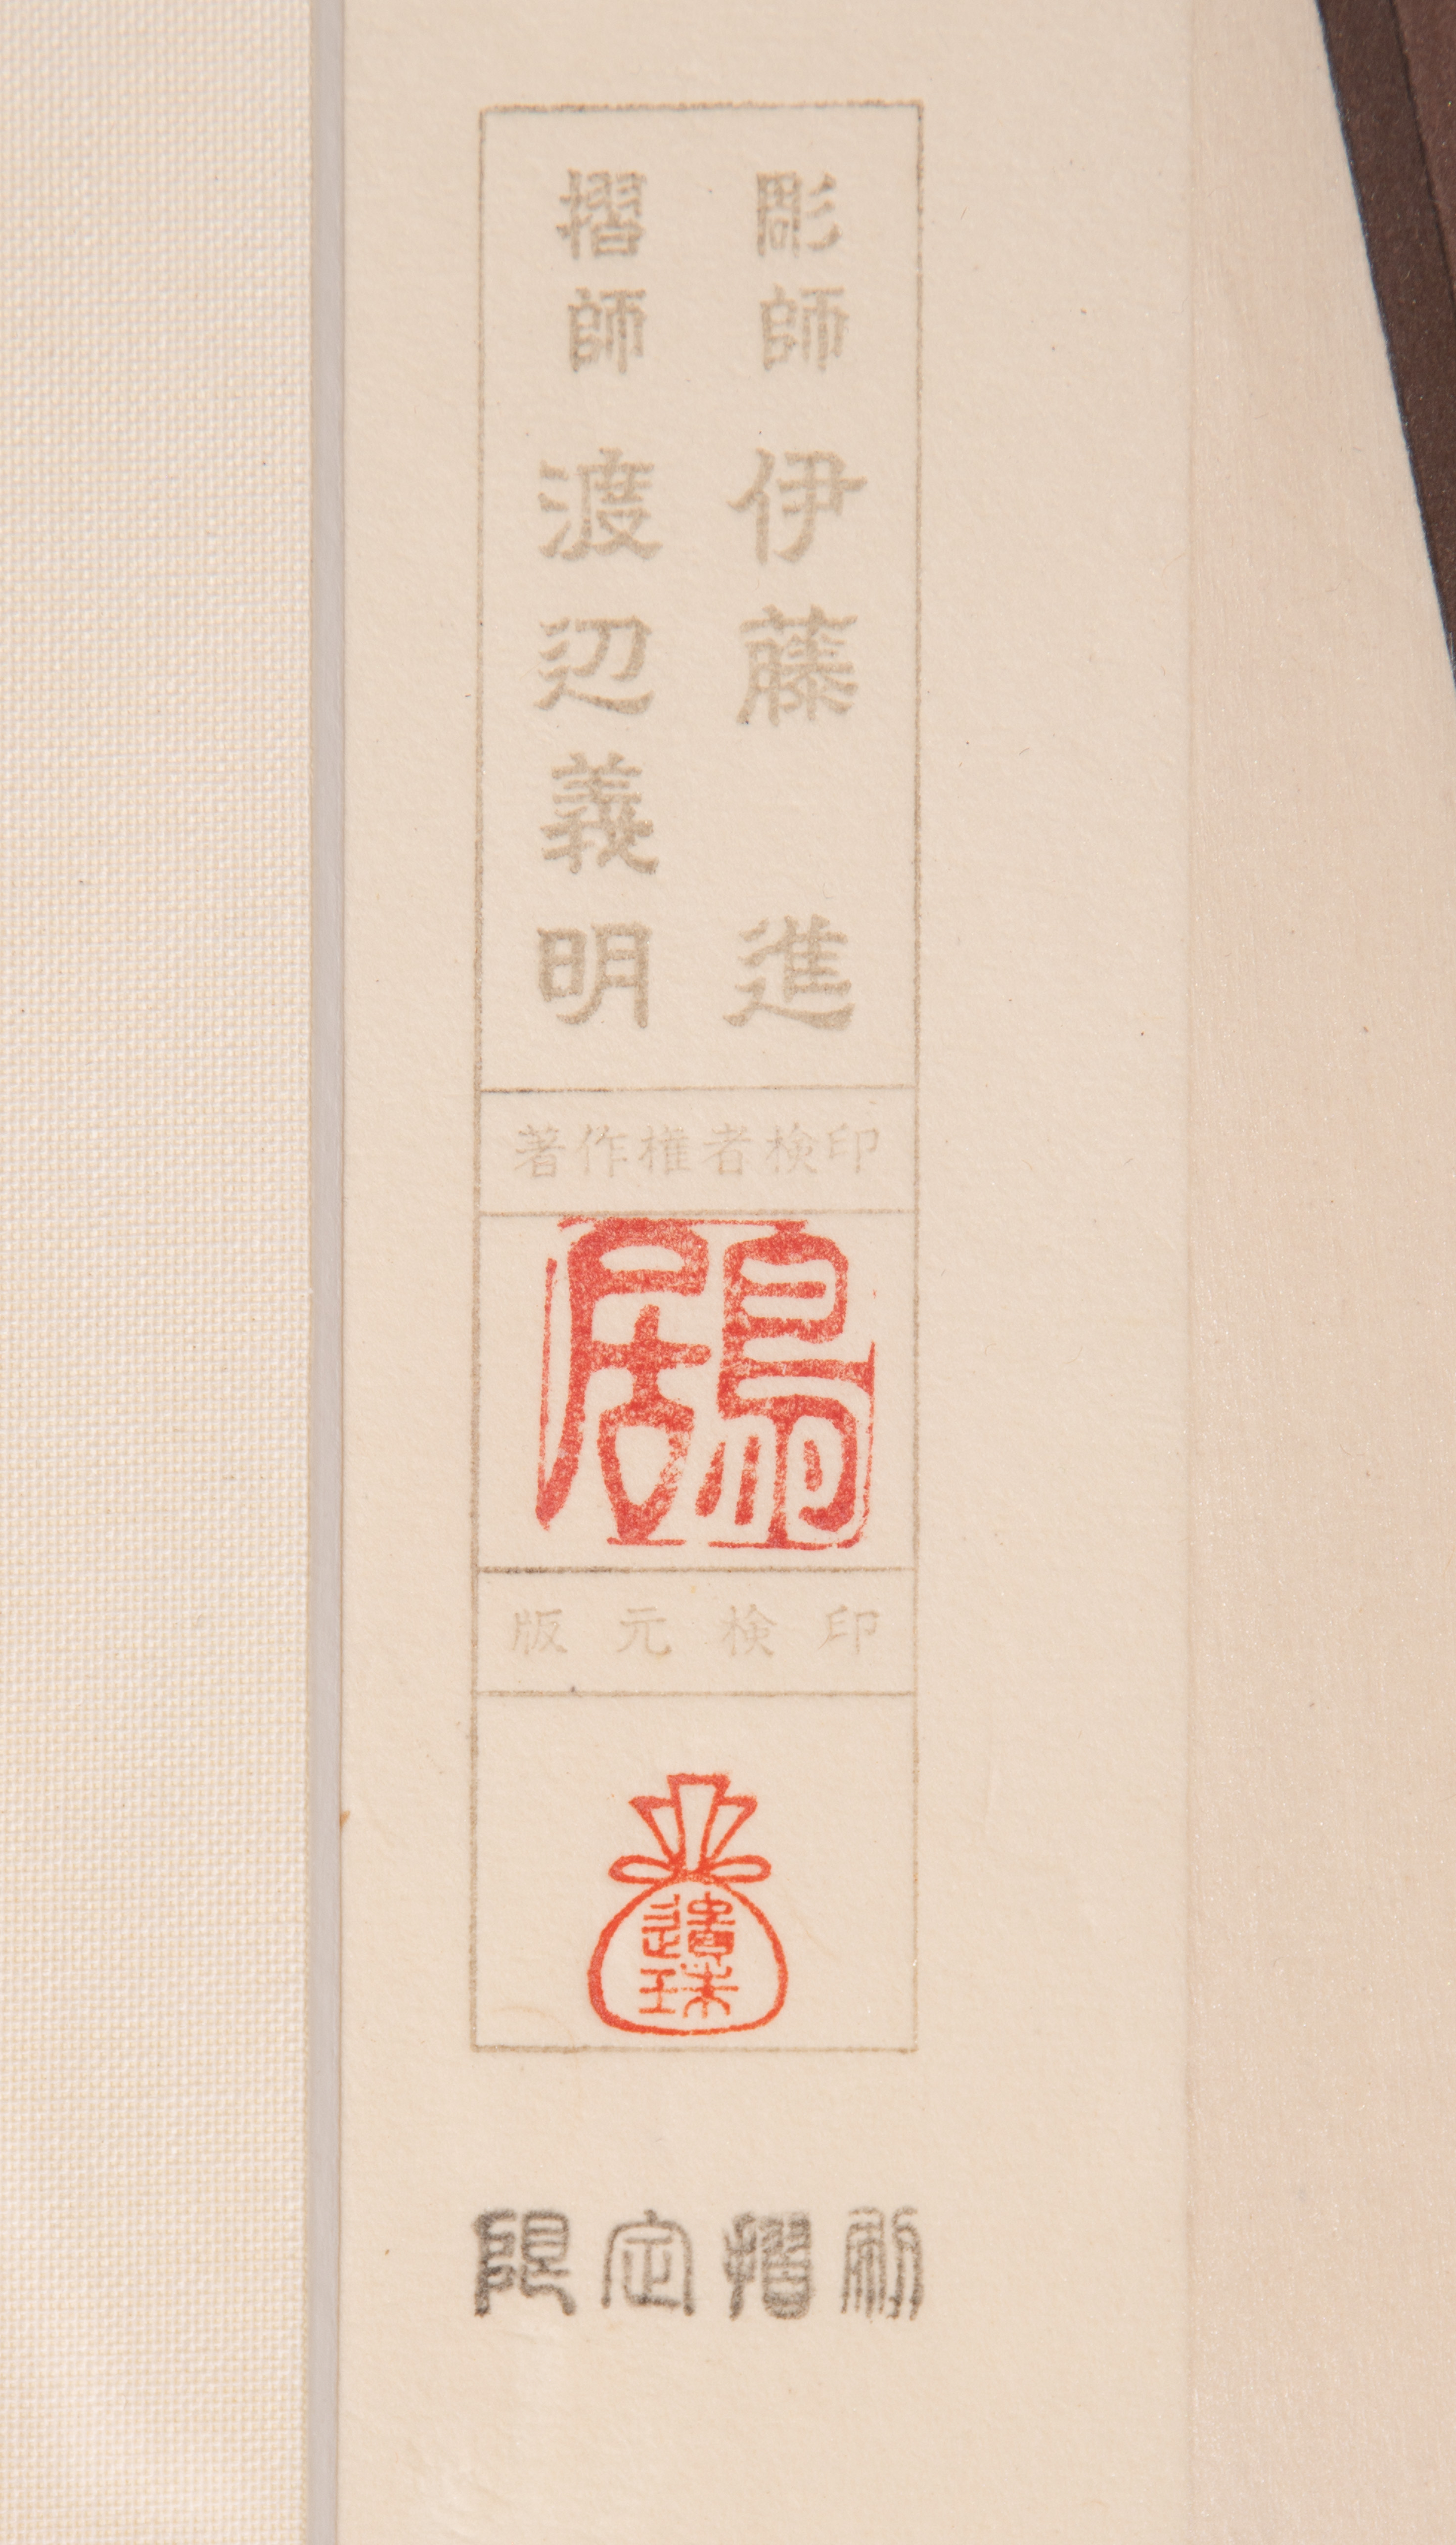 彫師 伊藤 進
摺師 渡辺義明
著作権者検印
鳥居
版元検印
遺珠
限定摺初